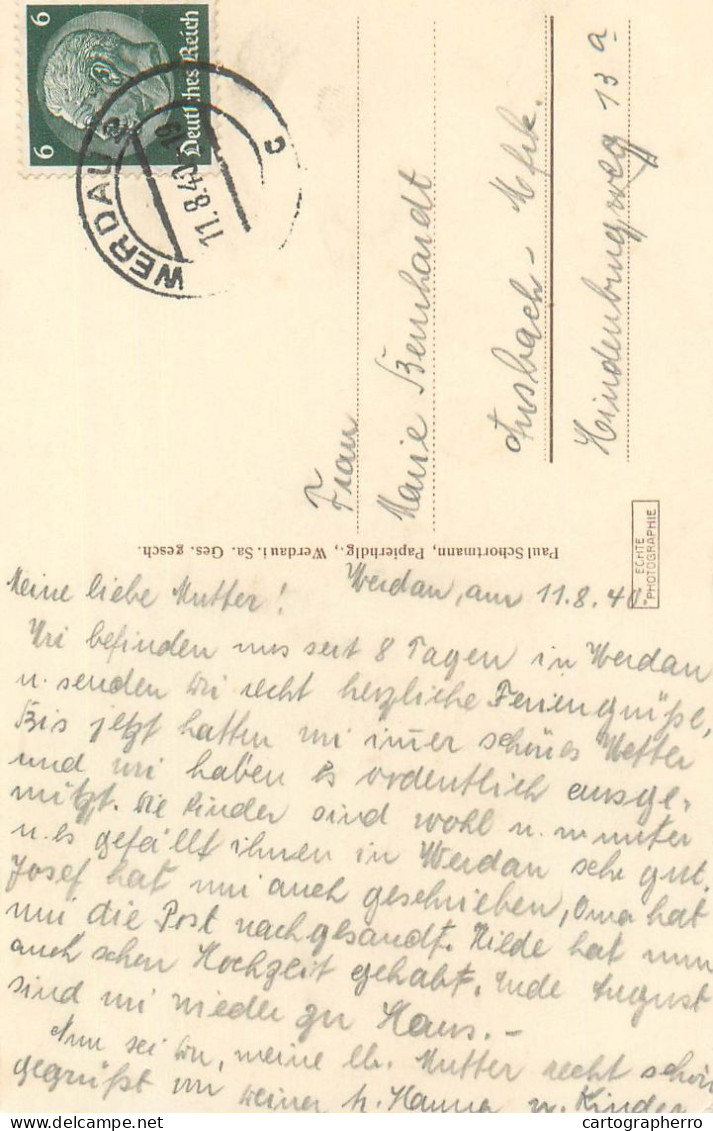 6 6
Deutsches Reich
WERDAU
11.8.40-19
c
Frau
Marie Bernhardt
Ansbach - Mfrk.
Hindenburgweg 13 a
Paul Schortmann, Papierhdlg., Werdau i. Sa. Ges. gesch.
ECHTE
PHOTOGRAPHIE
Werdau, am 11.8.40
Meine liebe Mutter!
Wir befinden uns seit 8 Tagen in Werdau
u. senden Dir recht herzliche Feriengrüße,
Bis jetzt hatten wir im̄er schönes Wetter
und wir haben es ordentlich ausge-
nützt. Die Kinder sind wohl u. munter
u. es gefällt ihnen in Werdau sehr gut.
Josef hat mir auch geschrieben, Oma hat
mir die Post nachgesandt. Hilde hat nun
auch schon Hochzeit gehabt. Ende August
sind wir wieder zu Haus. -
Nun sei Du, meine lb. Mutter recht schön
gegrüßt von Deiner Hanna u. Kinder
www.delcampe.net
cartographerro